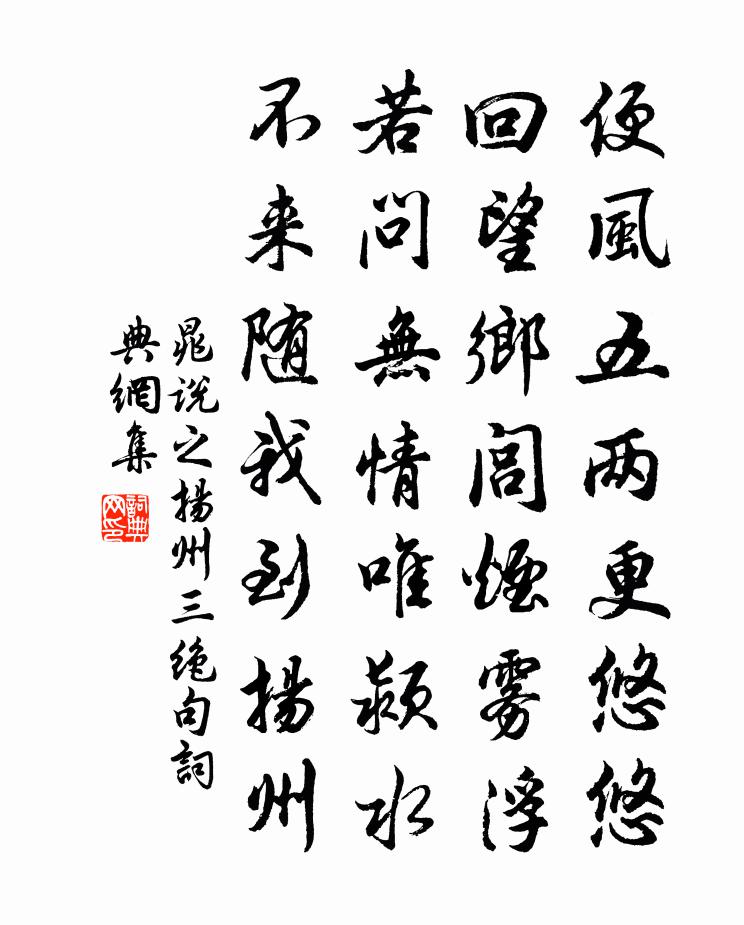 便風五两更悠悠
回望鄉閭煙雾浮
若問無情唯潁水
不来随我到揚州
晁说之揚州三绝句詞
典網集
詞典网印